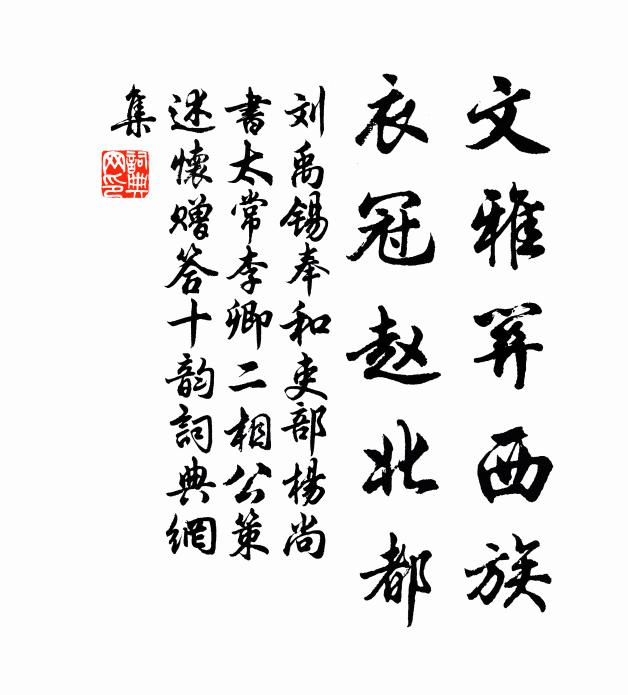 文雅关西族
衣冠赵北都
刘禹锡奉和吏部楊尚
書太常李卿二相公策
述懷赠答十韵詞典網
集
詞典网印